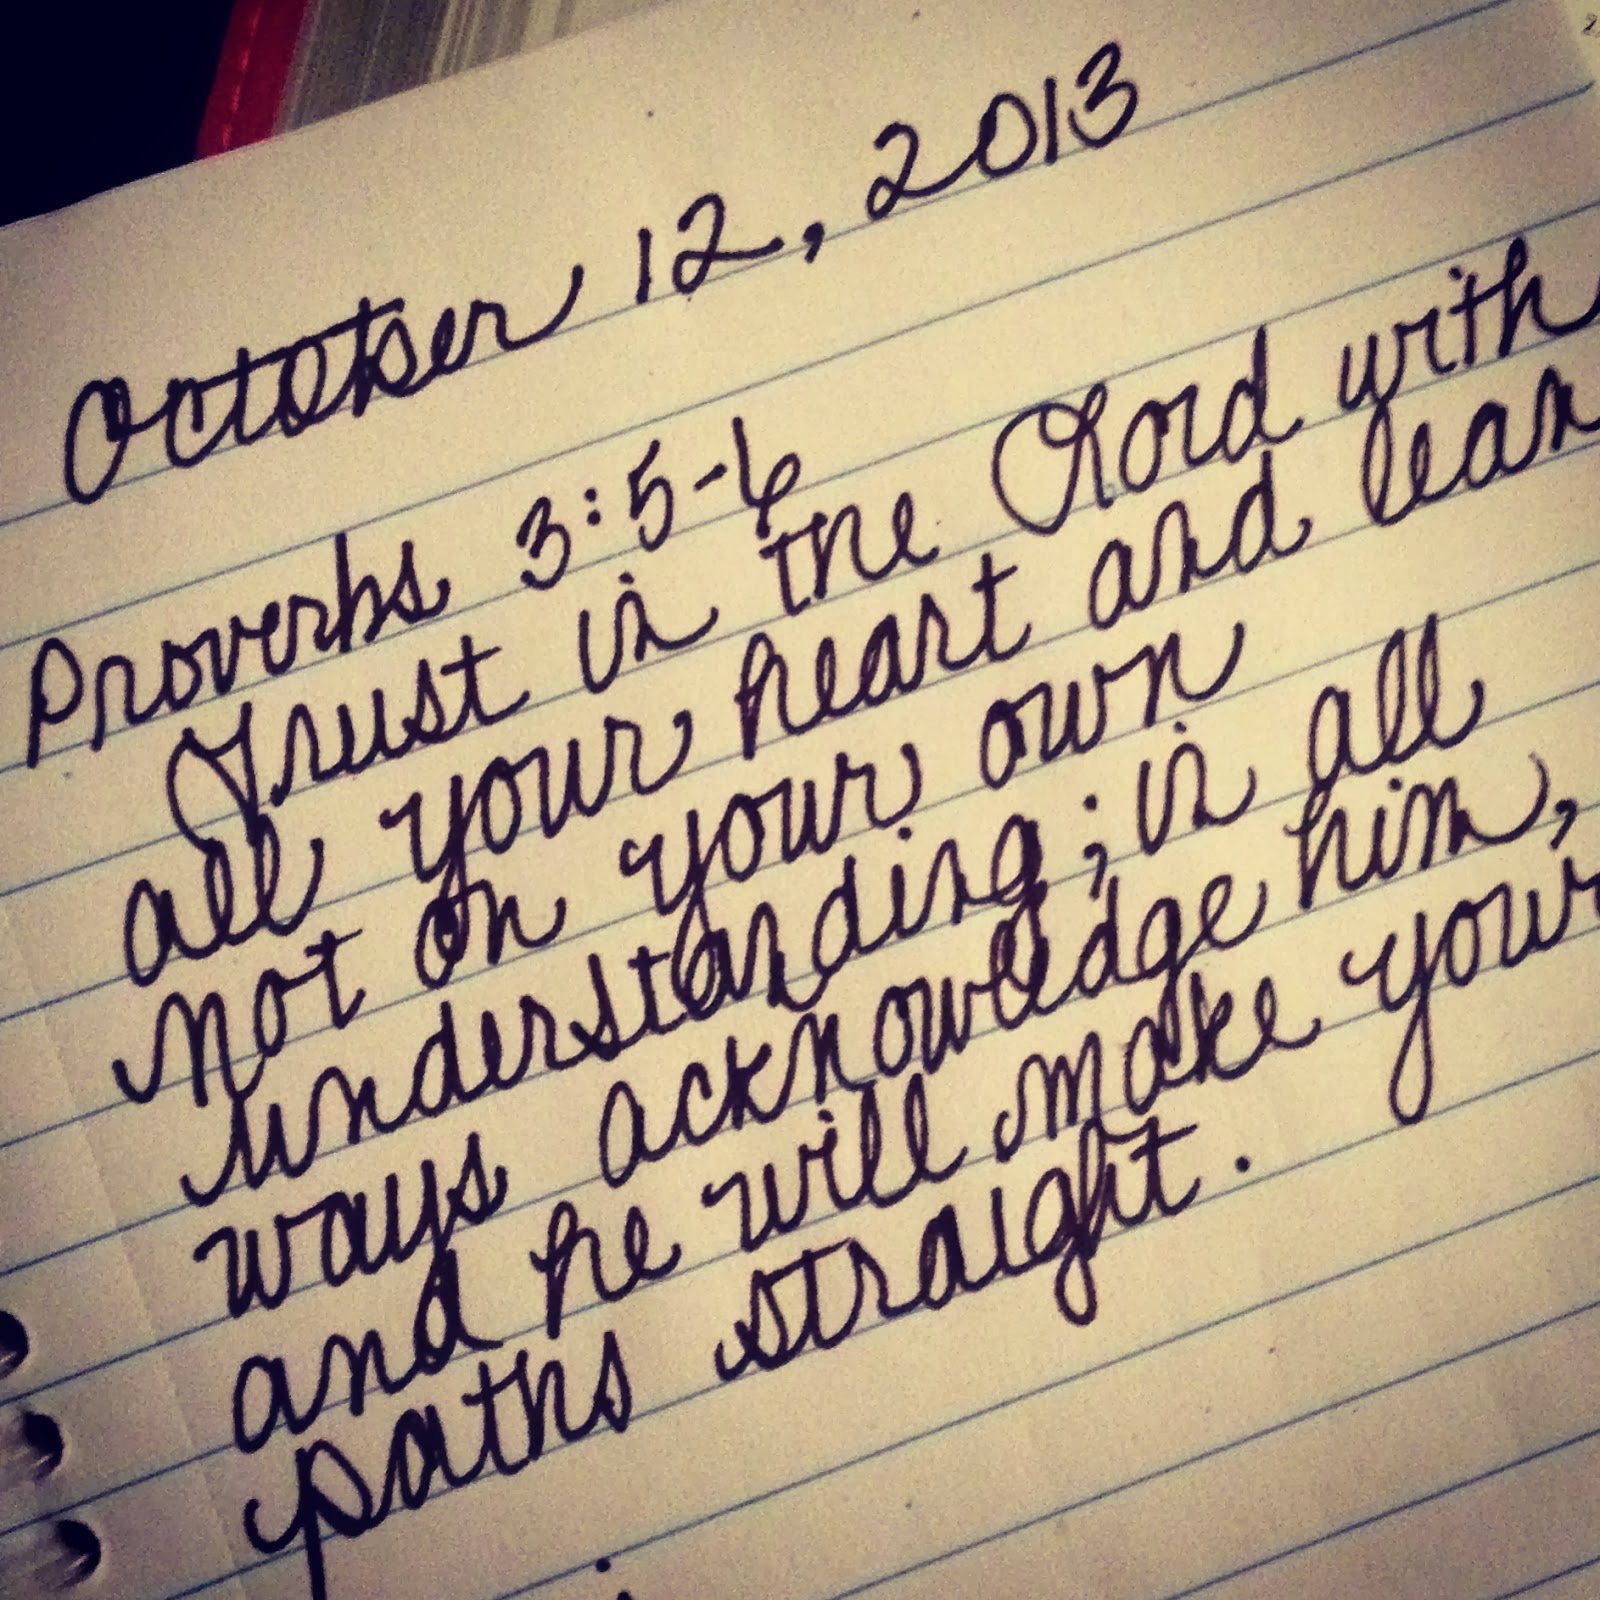 October 12, 2013
Proverbs 3:5-6
Trust in the Lord with
all your heart and lean
not on your own
understanding; in all
ways acknowledge him,
and he will make your
paths straight.